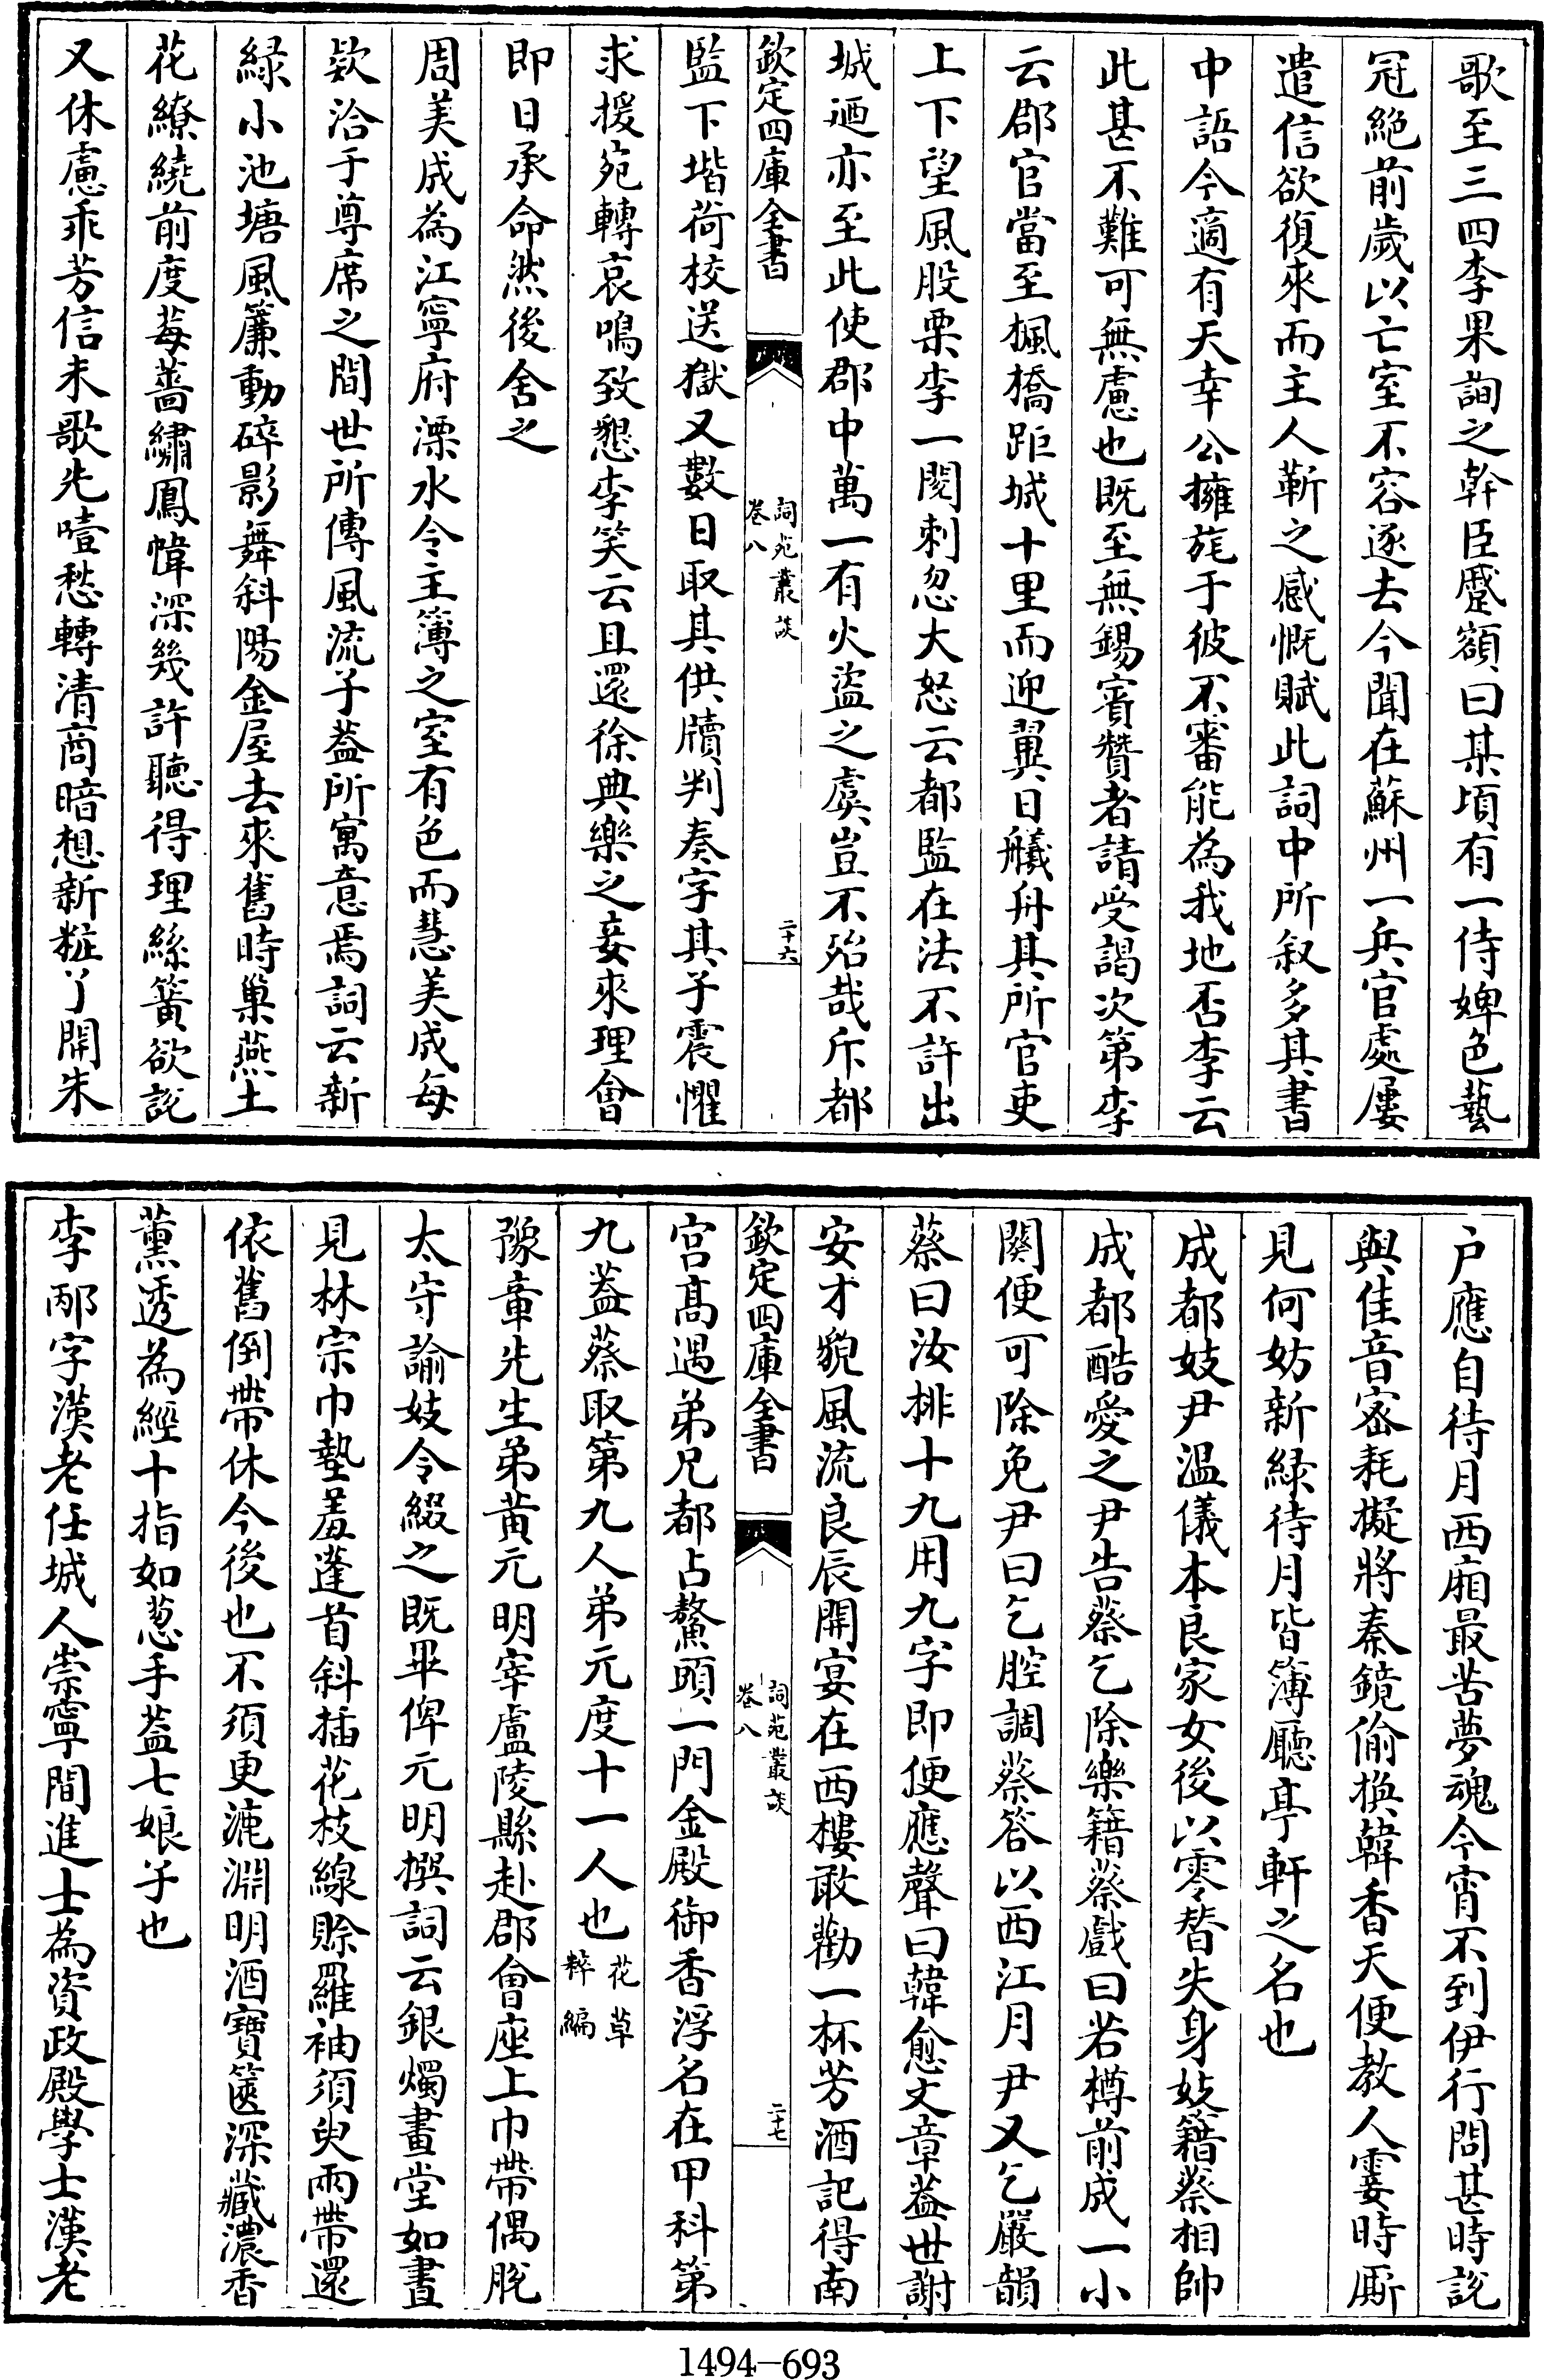 歌至三四李果詢之幹臣蹙額曰某頃有一侍婢色藝
冠絶前歲以亡室不容逐去今聞在蘇州一兵官處屢
遣信欲復來而主人靳之感慨賦此詞中所叙多其書
中語今適有天幸公擁旄于彼不審能為我地否李云
此甚不難可無慮也既至無錫賓贊者請受謁次第李
云郡官當至楓橋距城十里而迎翼日艤舟其所官吏
上下望風股栗李一閱刺忽大怒云都監在法不許出
城迺亦至此使郡中萬一有火盜之虞豈不殆哉斥都
欽定四庫全書
詞苑叢談
卷八
二十六
監下堦荷校送獄又數日取其供牘判奏字其子震懼
求援宛轉哀鳴致懇李笑云且還徐典樂之妾來理會
即日承命然後舍之
周美成為江寧府溧水令主簿之室有色而慧美成每
欵洽于尊席之間世所傳風流子葢所寓意焉詞云新
緑小池塘風簾動碎影舞斜陽金屋去來舊時巢燕土
花繚繞前度莓薔繡鳳幃深幾許聽得理絲簧欲說
又休慮乖芳信未歌先噎愁轉清商暗想新粧了開朱
户應自待月西廂最苦夢魂今宵不到伊行問甚時說
與佳音宻耗擬將秦鏡偷換韓香天便教人霎時厮
見何妨新緑待月皆簿廳亭軒之名也
成都妓尹温儀本良家女後以零替失身妓籍蔡相帥
成都酷愛之尹告蔡乞除樂籍蔡戲曰若樽前成一小
闋便可除免尹曰乞腔調蔡答以西江月尹又乞嚴韻
蔡曰汝排十九用九字即便應聲曰韓愈文章葢世謝
安才貌風流良辰開宴在西樓敢勸一杯芳酒記得南
欽定四庫全書
詞苑叢談
卷八
二十七
宫髙遇弟兄都占鰲頭一門金殿御香浮名在甲科第
九葢蔡取第九人弟元度十一人也花草
粹編
豫章先生弟黄元明宰盧陵縣赴郡會座上巾帶偶脱
太守諭妓令綴之既畢俾元明撰詞云銀燭畫堂如晝
見林宗巾墊羞蓬首斜插花枝線賖羅袖須臾兩帶還
依舊倒帶休今後也不須更漉淵明酒寶篋深藏濃香
薰透為經十指如葱手葢七娘子也
李邴字漢老任城人崇寧間進士為資政殿學士漢老
1494-693